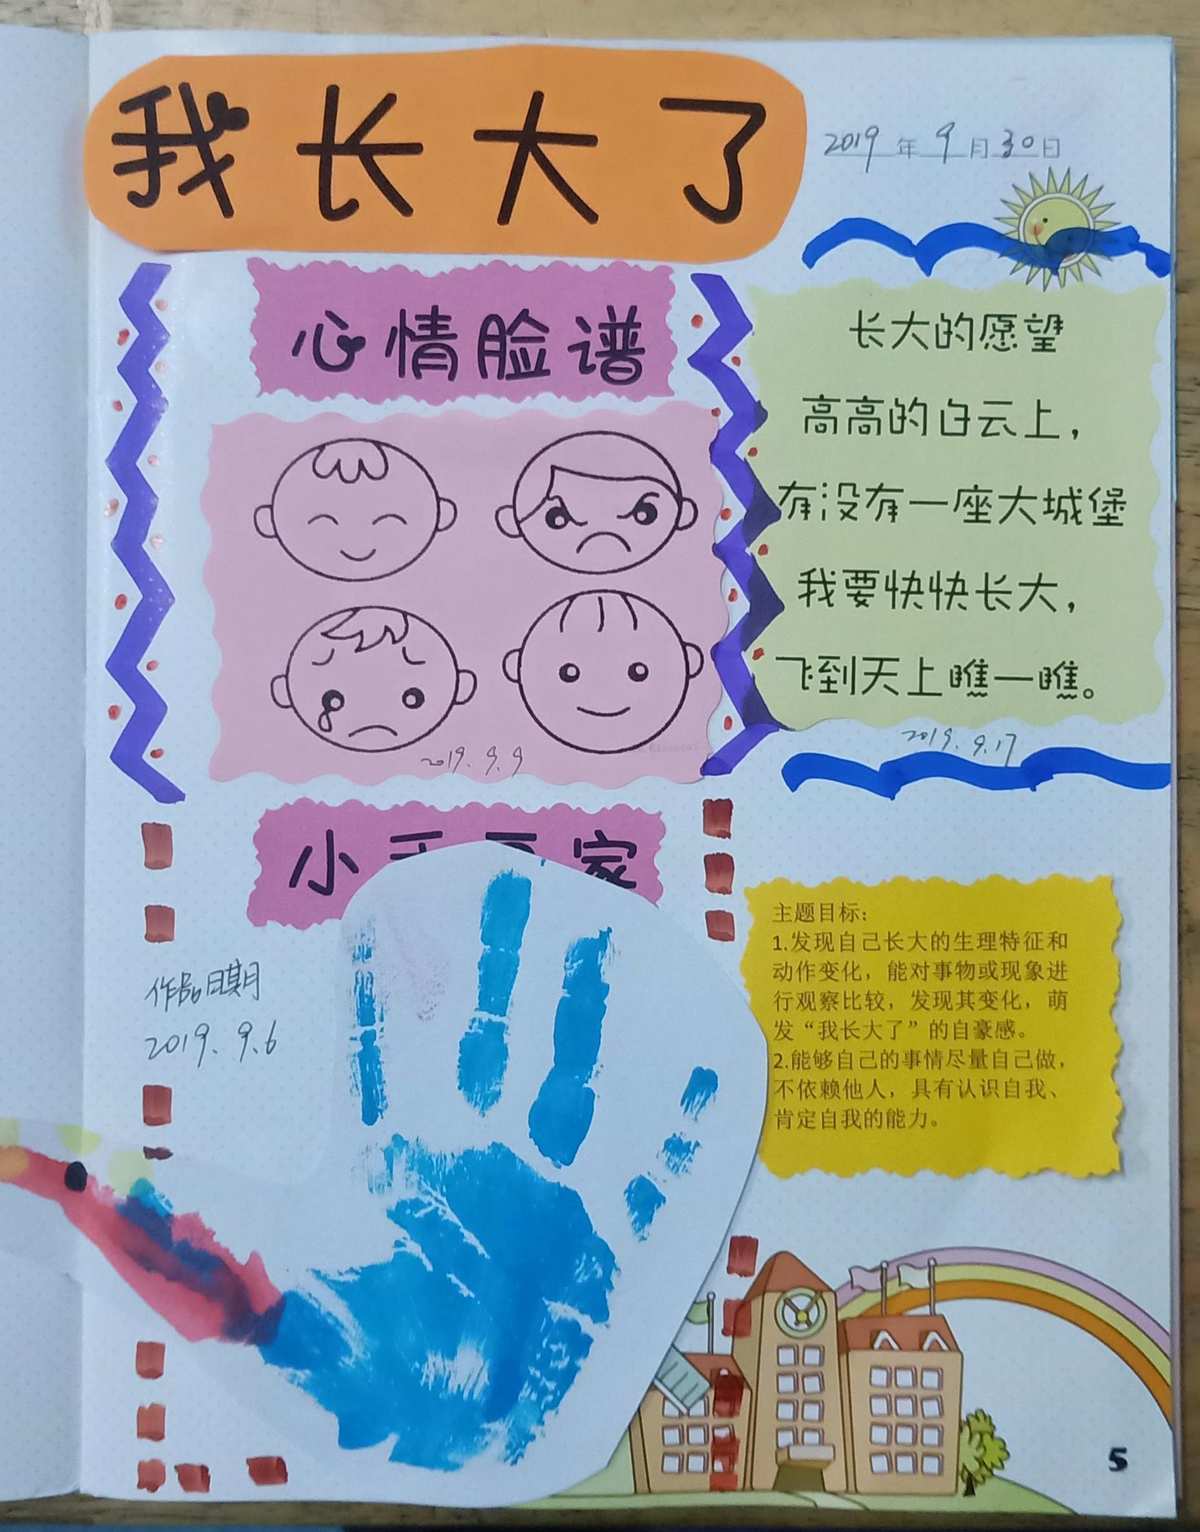 我长大了
2019年9月30日
心情脸谱
2019.9.9
长大的愿望
高高的白云上，
有没有一座大城堡
我要快快长大，
飞到天上瞧一瞧。
2019.9.17
小
家
作品日期
2019.9.6
主题目标：
1.发现自己长大的生理特征和
动作变化，能对事物或现象进
行观察比较，发现其变化，萌
发“我长大了”的自豪感。
2.能够自己的事情尽量自己做，
不依赖他人，具有认识自我、
肯定自我的能力。
5